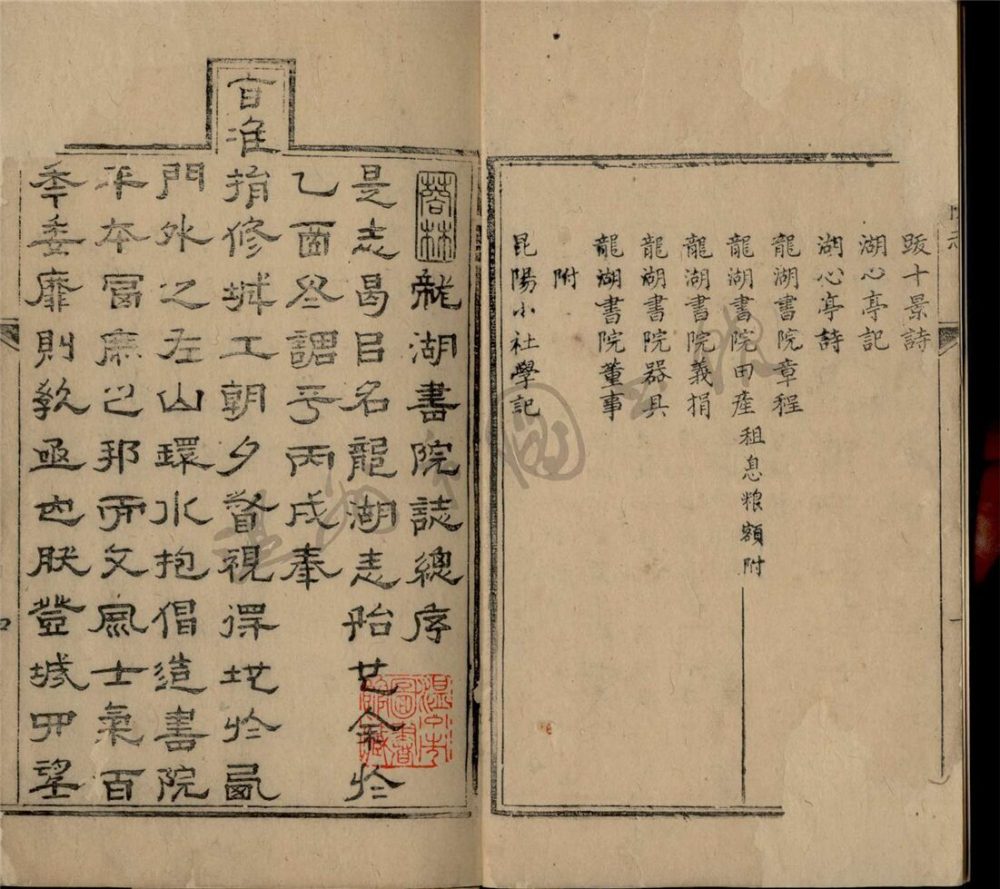 跋十景詩
湖心亭記
湖心亭詩
龍湖書院章程
龍湖書院田產租息粮額附
龍湖書院義捐
龍湖書院器具
龍湖書院董事
附
昆陽小社學記
蓉林
龍湖書院誌總序
是志曷㠯名龍湖志也余於
乙酉冬調平丙戌奉
旨准捐修城工朝夕督視得地於鳳
門外之左山環水抱倡造書院
平本富庶之邦而文風士氣百
秊委靡則教亟也登城四望
溫州市圖書館藏